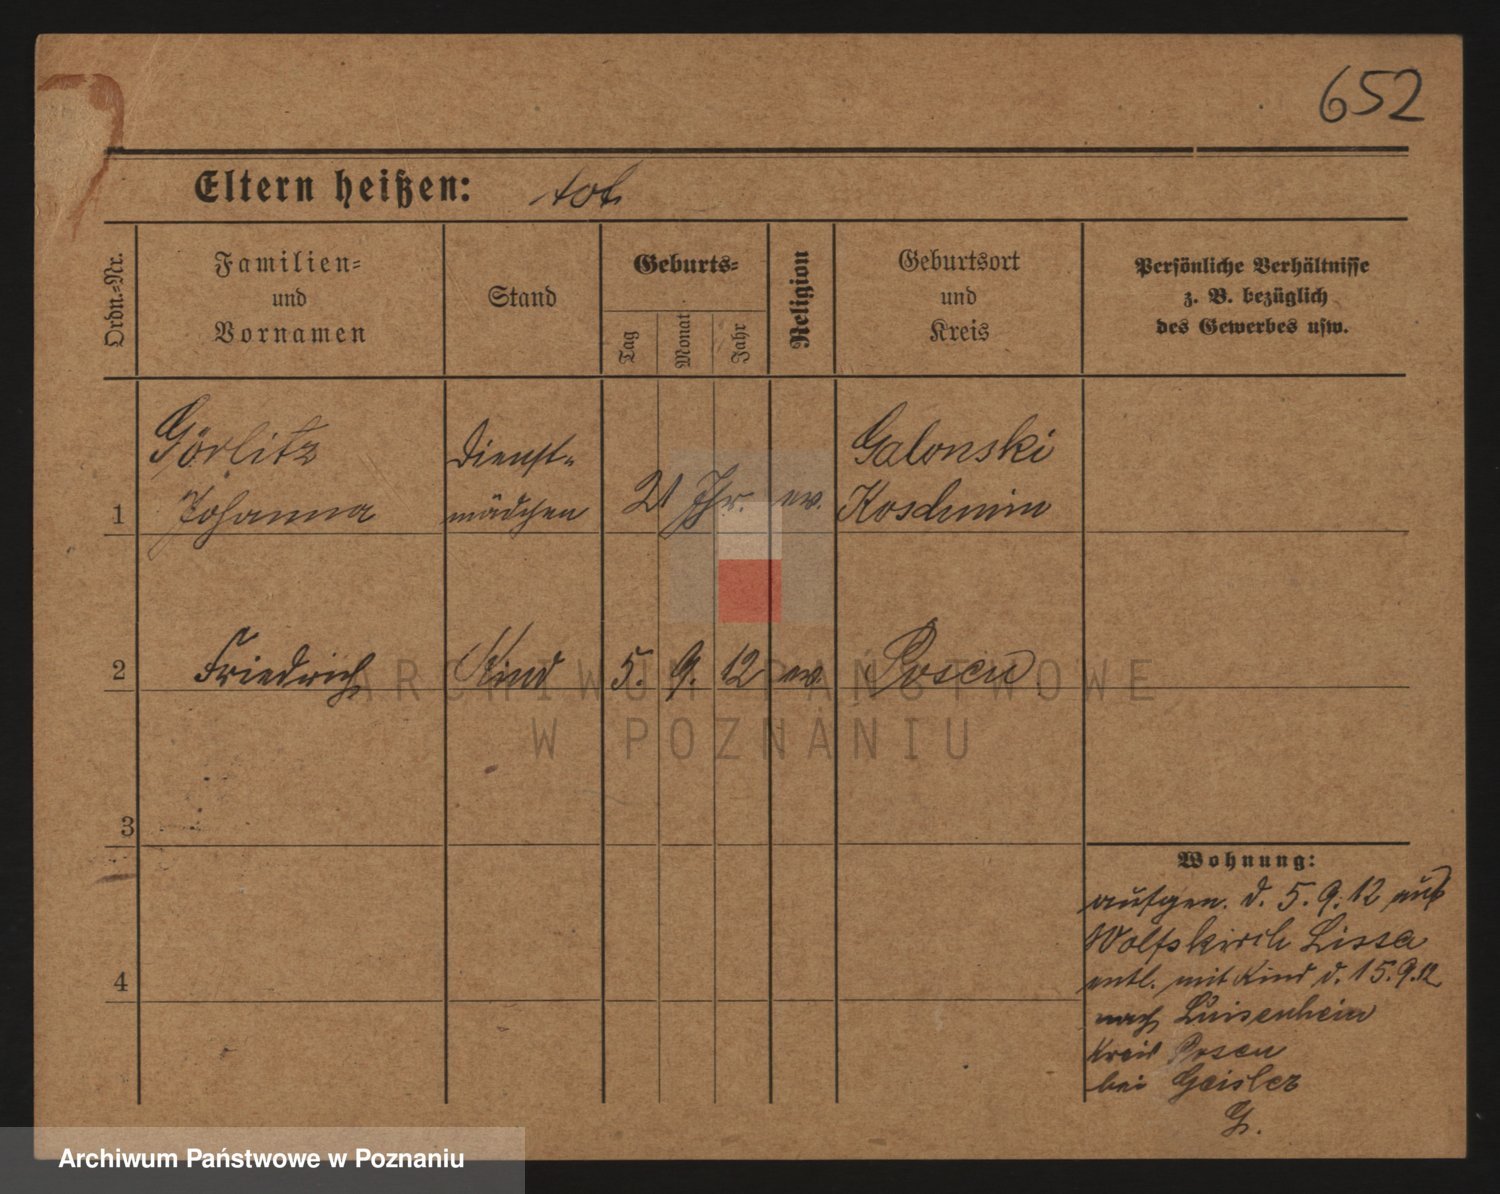 652
Eltern heißen: tot
Ordn.=Nr.
Familien=
und
Vornamen
Stand
Geburts=
Tag
Monat
Jahr
Religion
Geburtsort
und
Kreis
Persönliche Verhältnisse
z. B. bezüglich
des Gewerbes usw.
Görlitz Dienst= Galonski
1 Johanna mädchen 21 Jhr. ev. Koschmin
2 Friedrich Kind 5. 9. 12 ev. Posen
3
Wohnung:
aufgen. d. 5. 9. 12 aus
Wolfskirch Lissa
entl. mit Kind d. 15. 9. 12
nach Luisenhein
Kreis Posen
bei Geisler
G.
4
ARCHIWUM PAŃSTWOWE
W POZNANIU
Archiwum Państwowe w Poznaniu